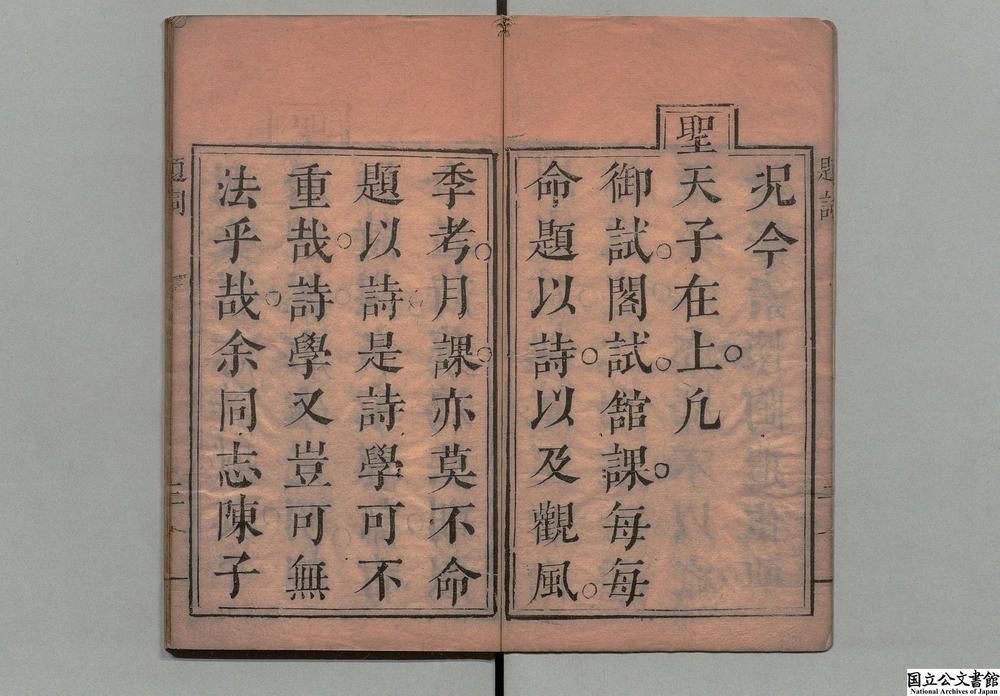 况今
聖天子在上。凡
御試。閣試。舘課。每每
命題以詩。以及觀風。
季考。月課。亦莫不命
題以詩是詩學可不
重哉。詩學又豈可無
法乎哉。余同志陳子
題詞
国立公文書館
National Archives of Japan